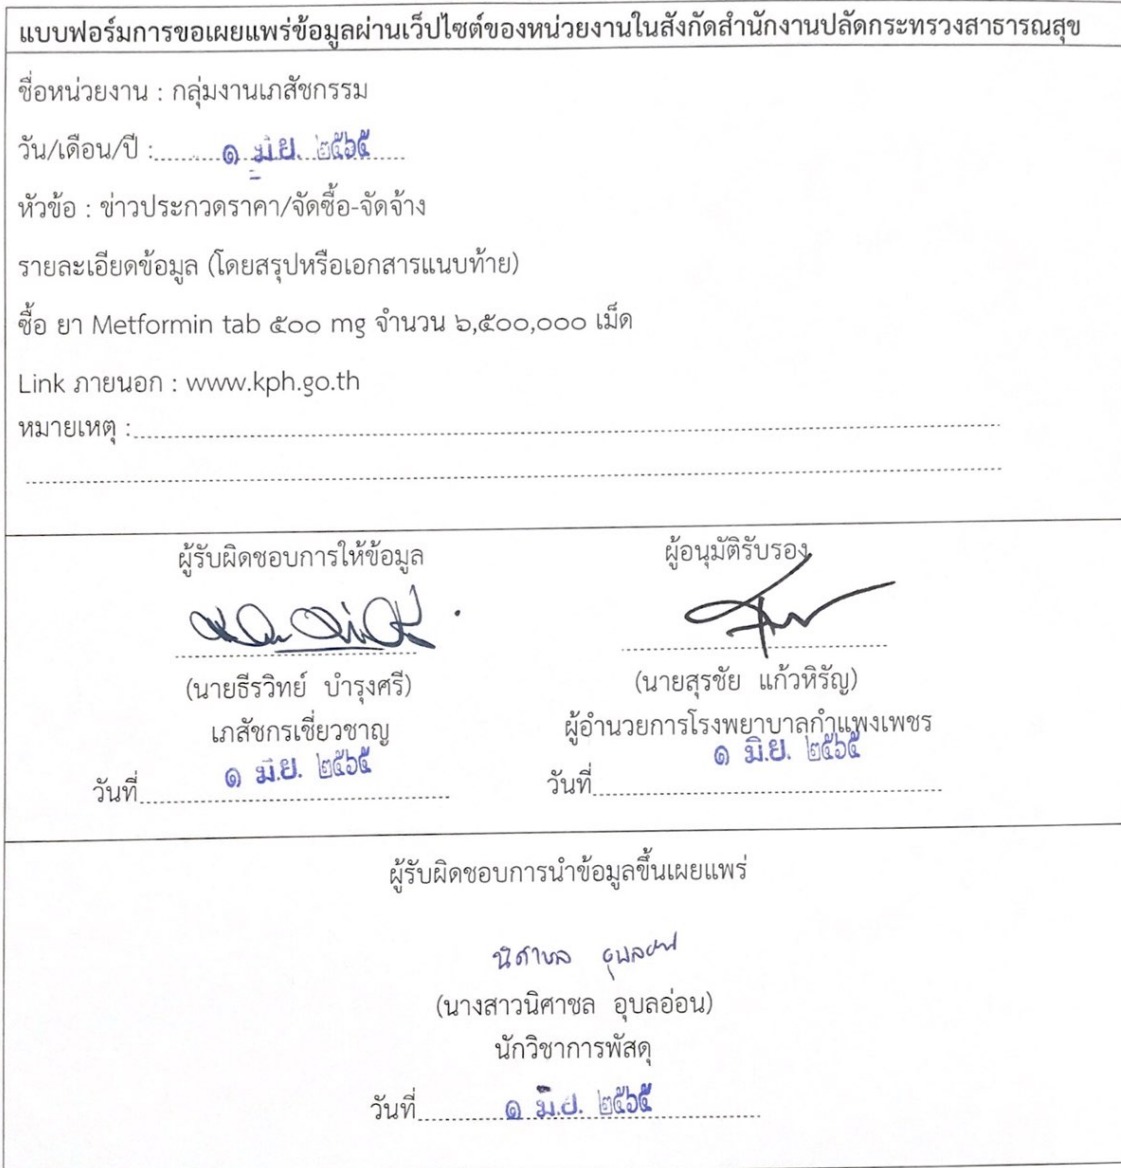 แบบฟอร์มการขอเผยแพร่ข้อมูลผ่านเว็ปไซต์ของหน่วยงานในสังกัดสำนักงานปลัดกระทรวงสาธารณสุข
ชื่อหน่วยงาน : กลุ่มงานเภสัชกรรม
วัน/เดือน/ปี : ๑ มิ.ย. ๒๕๖๕
หัวข้อ : ข่าวประกวดราคา/จัดซื้อ-จัดจ้าง
รายละเอียดข้อมูล (โดยสรุปหรือเอกสารแนบท้าย)
ซื้อ ยา Metformin tab ๕๐๐ mg จำนวน ๖,๕๐๐,๐๐๐ เม็ด
Link ภายนอก : www.kph.go.th
หมายเหตุ :
ผู้รับผิดชอบการให้ข้อมูล
(นายธีรวิทย์ บำรุงศรี)
เภสัชกรเชี่ยวชาญ
วันที่ ๑ มิ.ย. ๒๕๖๕
ผู้อนุมัติรับรอง
(นายสุรชัย แก้วหิรัญ)
ผู้อำนวยการโรงพยาบาลกำแพงเพชร
วันที่ ๑ มิ.ย. ๒๕๖๕
ผู้รับผิดชอบการนำข้อมูลขึ้นเผยแพร่
นิศาชล อุบลอ่อน
(นางสาวนิศาชล อุบลอ่อน)
นักวิชาการพัสดุ
วันที่ ๑ มิ.ย. ๒๕๖๕